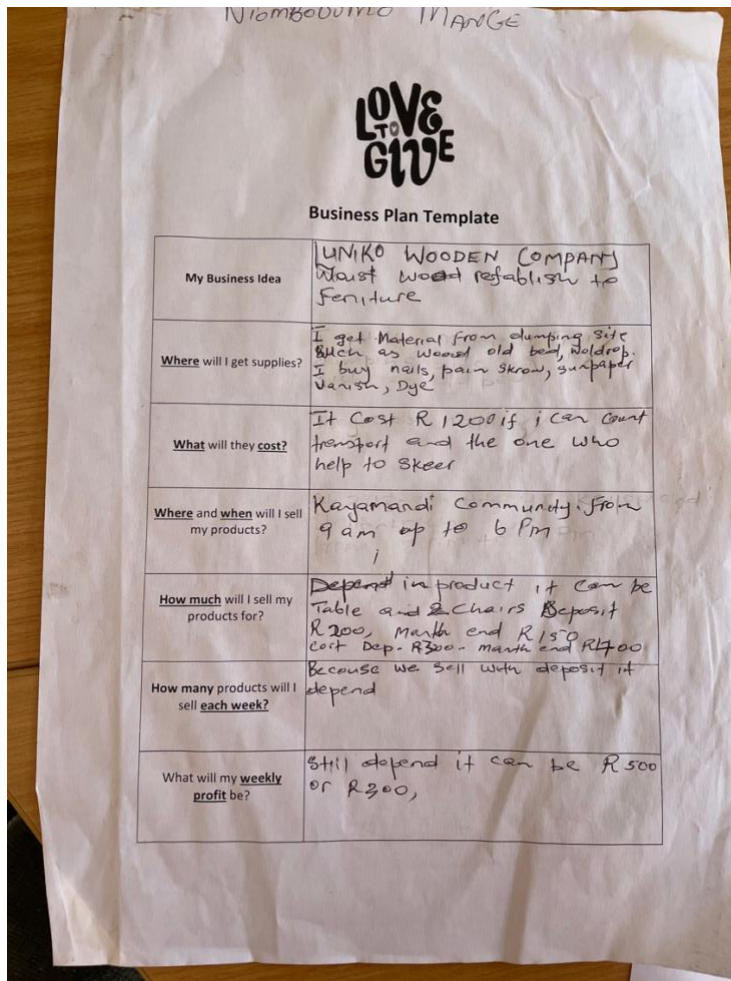 MANGE
LOVE
TO
GIVE
Business Plan Template
My Business Idea
LUNIKO WOODEN COMPANY
Waist wood refablish to
Feniture
Where will I get supplies?
I get Material from dumping site
Such as wood old bed, Woldrop.
I buy nails, pain skrow, sunpaper
Vanish, Dye
What will they cost?
It Cost R1200 if i can Count
transport and the one who
help to skeer
Where and when will I sell
my products?
Kayamandi Community. From
9 am up to 6 Pm
How much will I sell my
products for?
Depend in product it can be
Table and 2 Chairs Deposit
R200, Month end R150
Dep- R300- month end
How many products will I
sell each week?
Because we sell with deposit it
depend
What will my weekly
profit be?
Still depend it can be R500
or R300,